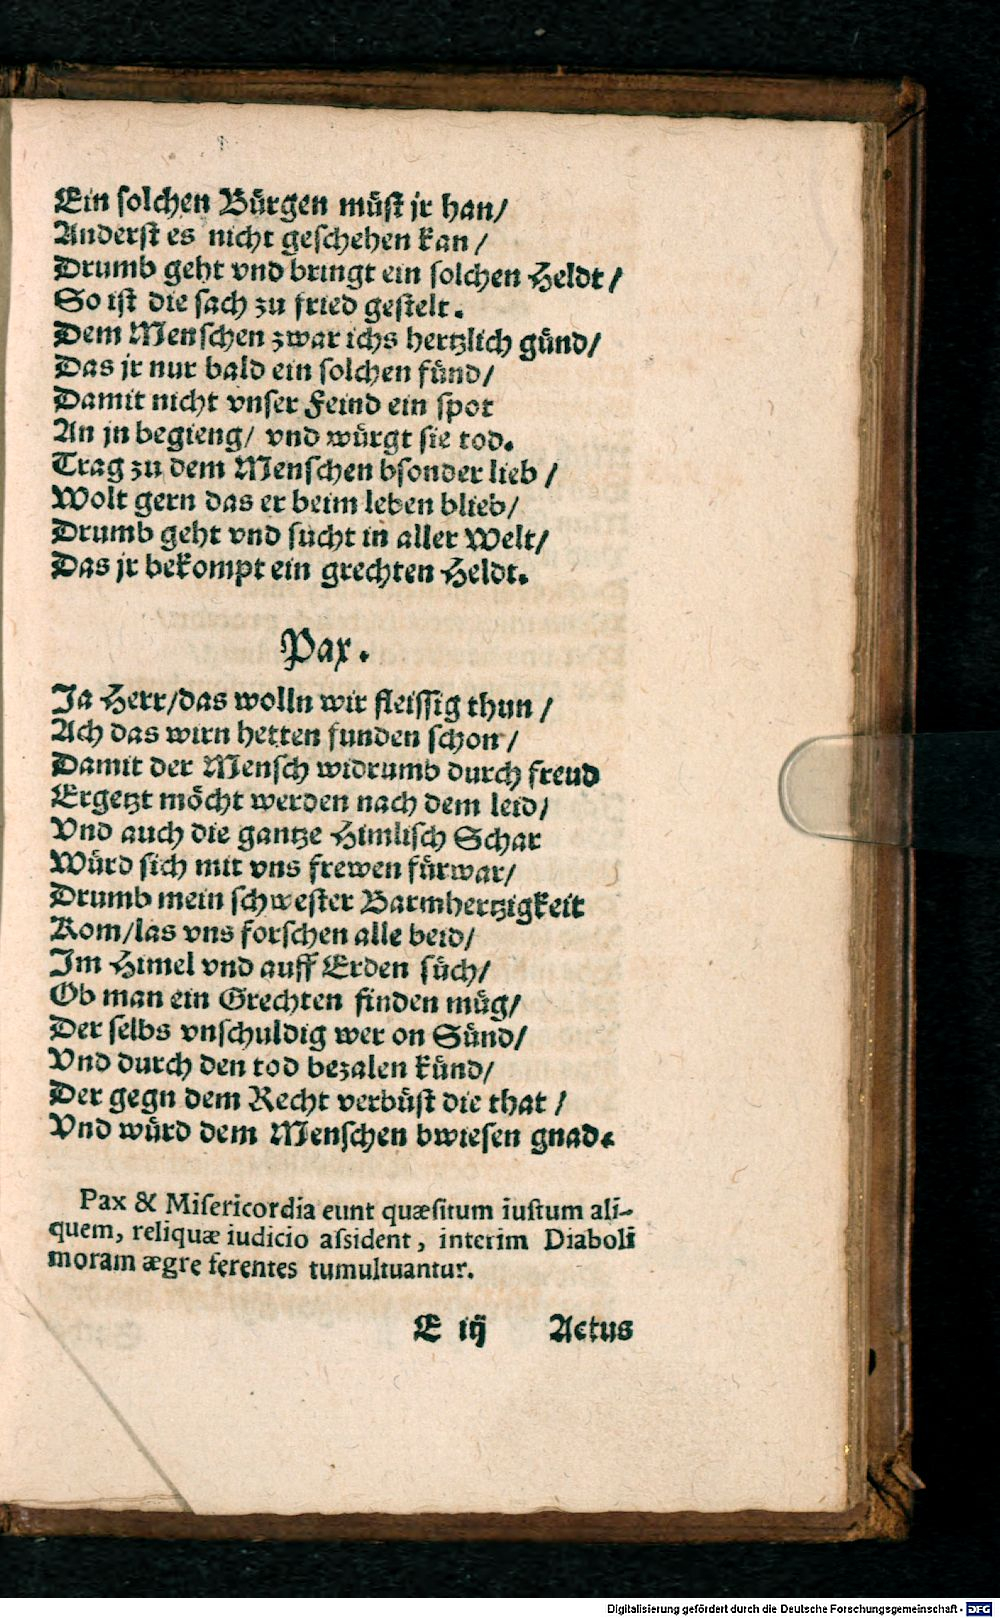 Ein solchen Bürgen müst jr han/
Anderst es nicht geschehen kan/
Drumb geht vnd bringt ein solchen Heldt/
So ist die sach zu fried gestelt.
Dem Menschen zwar ichs hertzlich günd/
Das jr nur bald ein solchen fünd/
Damit nicht vnser Feind ein spot
An jn begieng/ vnd würgt sie tod.
Trag zu dem Menschen bsonder lieb/
Wolt gern das er beim leben blieb/
Drumb geht vnd sucht in aller Welt/
Das jr bekompt ein grechten Heldt.
Pax.
Ja Herr/das wolln wir fleissig thun/
Ach das wirn hetten funden schon/
Damit der Mensch widrumb durch freud
Ergetzt möcht werden nach dem leid/
Vnd auch die gantze Himlisch Schar
Würd sich mit vns frewen fürwar/
Drumb mein schwester Barmhertzigkeit
Kom/las vns forschen alle beid/
Im Himel vnd auff Erden süch/
Ob man ein Grechten finden müg/
Der selbs vnschuldig wer on Sünd/
Vnd durch den tod bezalen künd/
Der gegn dem Recht verbüst die that/
Vnd würd dem Menschen bwiesen gnad.
Pax & Misericordia eunt quæsitum iustum ali-
quem, reliquæ iudicio assident, interim Diaboli
moram ægre ferentes tumultuantur.
E iij Actus
Digitalisierung gefördert durch die Deutsche Forschungsgemeinschaft - DFG